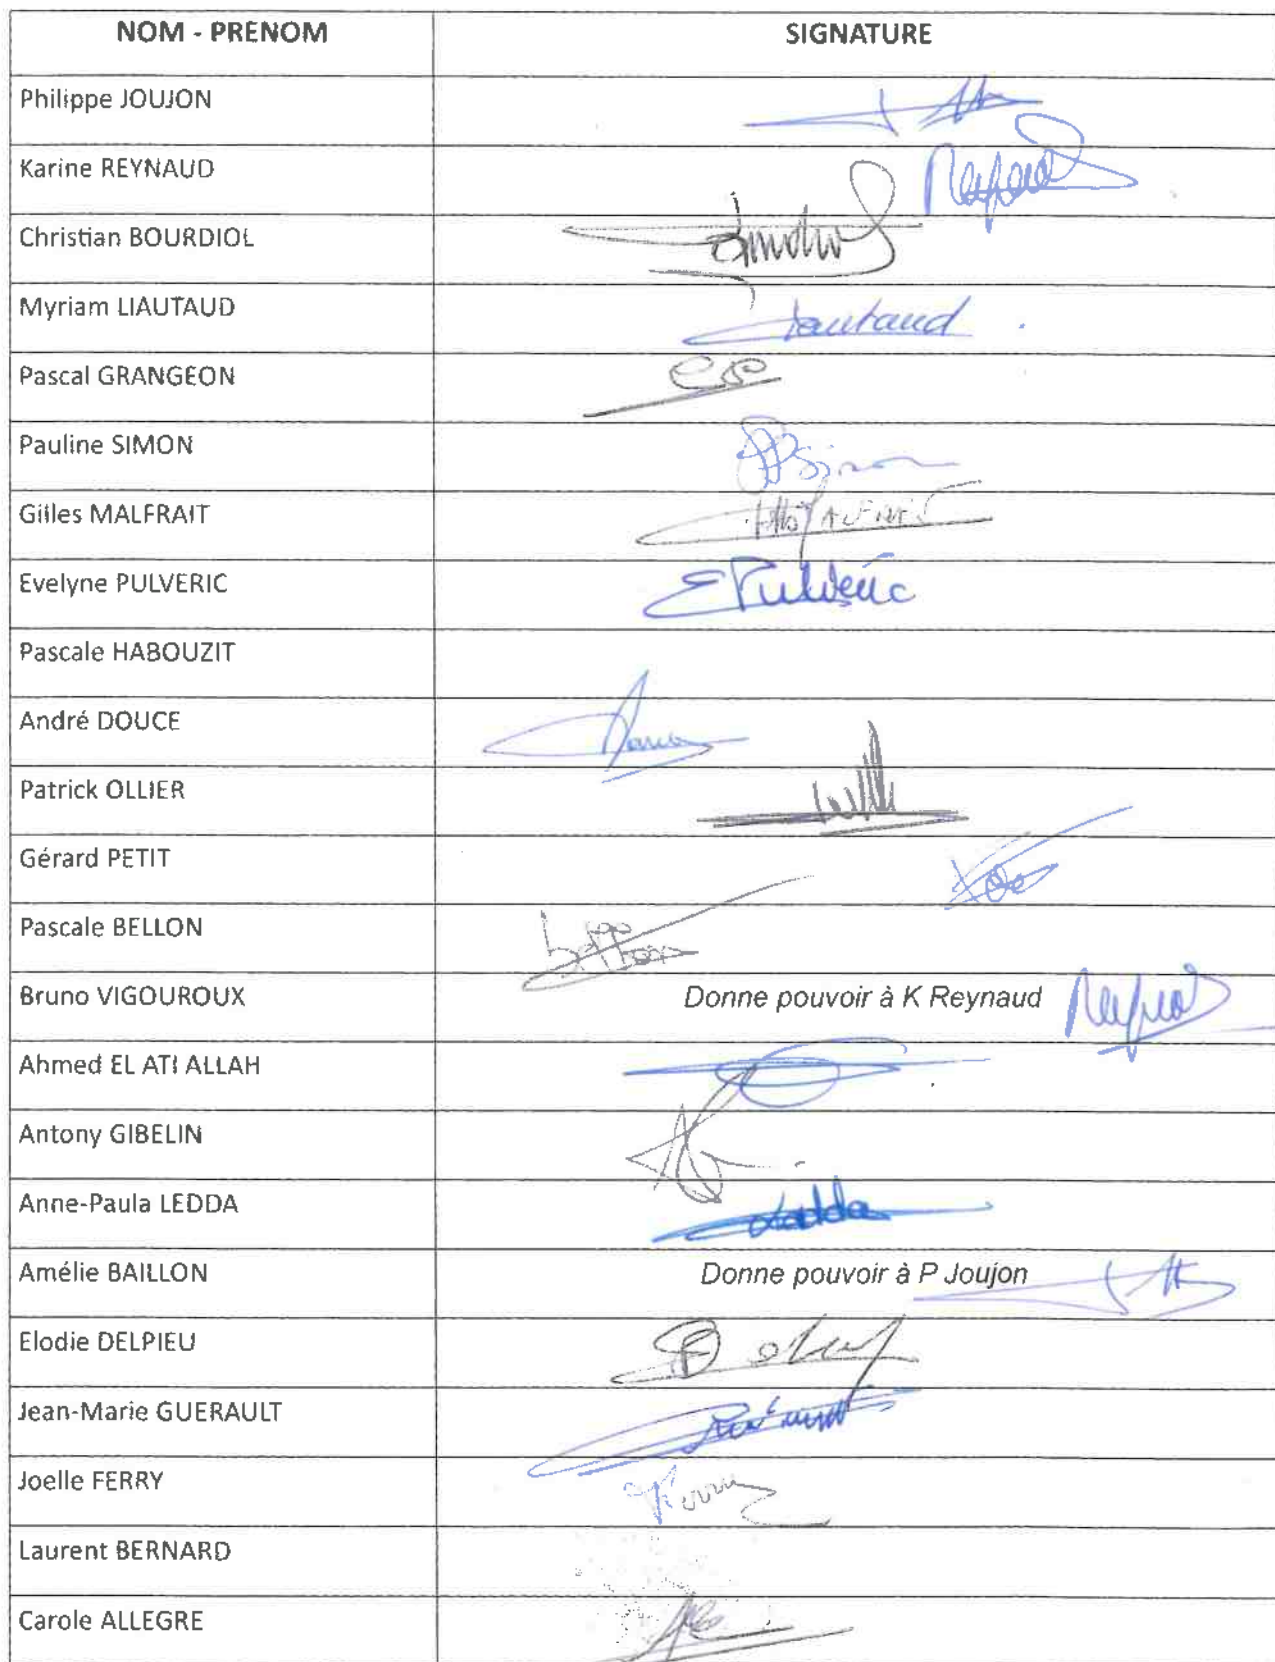 NOM - PRENOM SIGNATURE
Philippe JOUJON
Karine REYNAUD
Christian BOURDIOL
Myriam LIAUTAUD Liautaud
Pascal GRANGEON
Pauline SIMON Simon
Gilles MALFRAIT
Evelyne PULVERIC E Pulvéric
Pascale HABOUZIT
André DOUCE
Patrick OLLIER
Gérard PETIT
Pascale BELLON
Bruno VIGOUROUX Donne pouvoir à K Reynaud
Ahmed EL ATI ALLAH
Antony GIBELIN
Anne-Paula LEDDA Ledda
Amélie BAILLON Donne pouvoir à P Joujon
Elodie DELPIEU
Jean-Marie GUERAULT
Joelle FERRY Ferry
Laurent BERNARD
Carole ALLEGRE